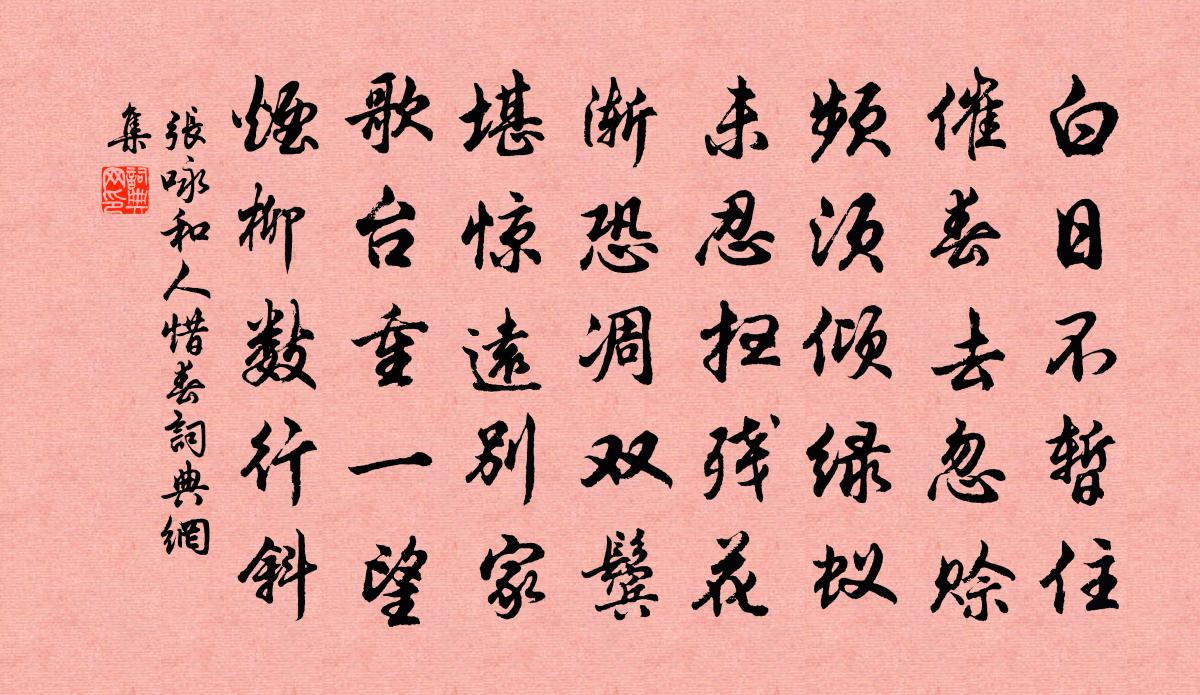 白日不暂住
催春去忽赊
频须倾绿蚁
未忍扫残花
渐恐凋双鬓
堪惊远别家
歌台重一望
烟柳数行斜
張咏和人惜春詞典網
集
詞典
网印